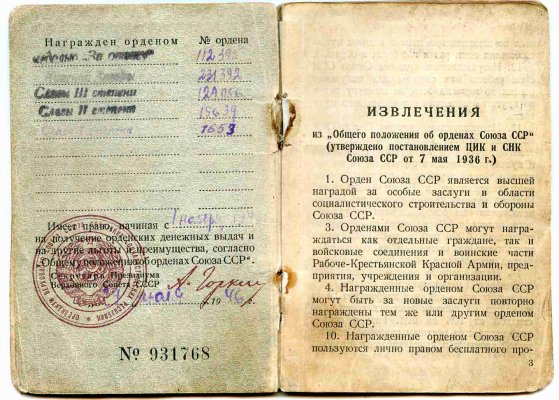 Награжден орденом № ордена
"За отвагу"
Славы III степени
Славы II степени
1653
Имеет право, начиная с 1 нояб.
на получение орденских денежных выдач и
на другие льготы и преимущества, согласно
„Общему положению об орденах Союза ССР“.
Секретарь Президиума
Верховного Совета СССР А. Горкин
194
№ 931768
ИЗВЛЕЧЕНИЯ
из „Общего положения об орденах Союза ССР“
(утверждено постановлением ЦИК и СНК
Союза ССР от 7 мая 1936 г.)
1. Орден Союза ССР является высшей
наградой за особые заслуги в области
социалистического строительства и обороны
Союза ССР.
3. Орденами Союза ССР могут на-
граждаться как отдельные граждане, так и
войсковые соединения и воинские части
Рабоче-Крестьянской Красной Армии, пред-
приятия, учреждения и организации.
4. Награжденные орденом Союза ССР
могут быть за новые заслуги повторно
награждены тем же или другим орденом
Союза ССР.
10. Награжденные орденом Союза ССР
пользуются лично правом бесплатного про-
3